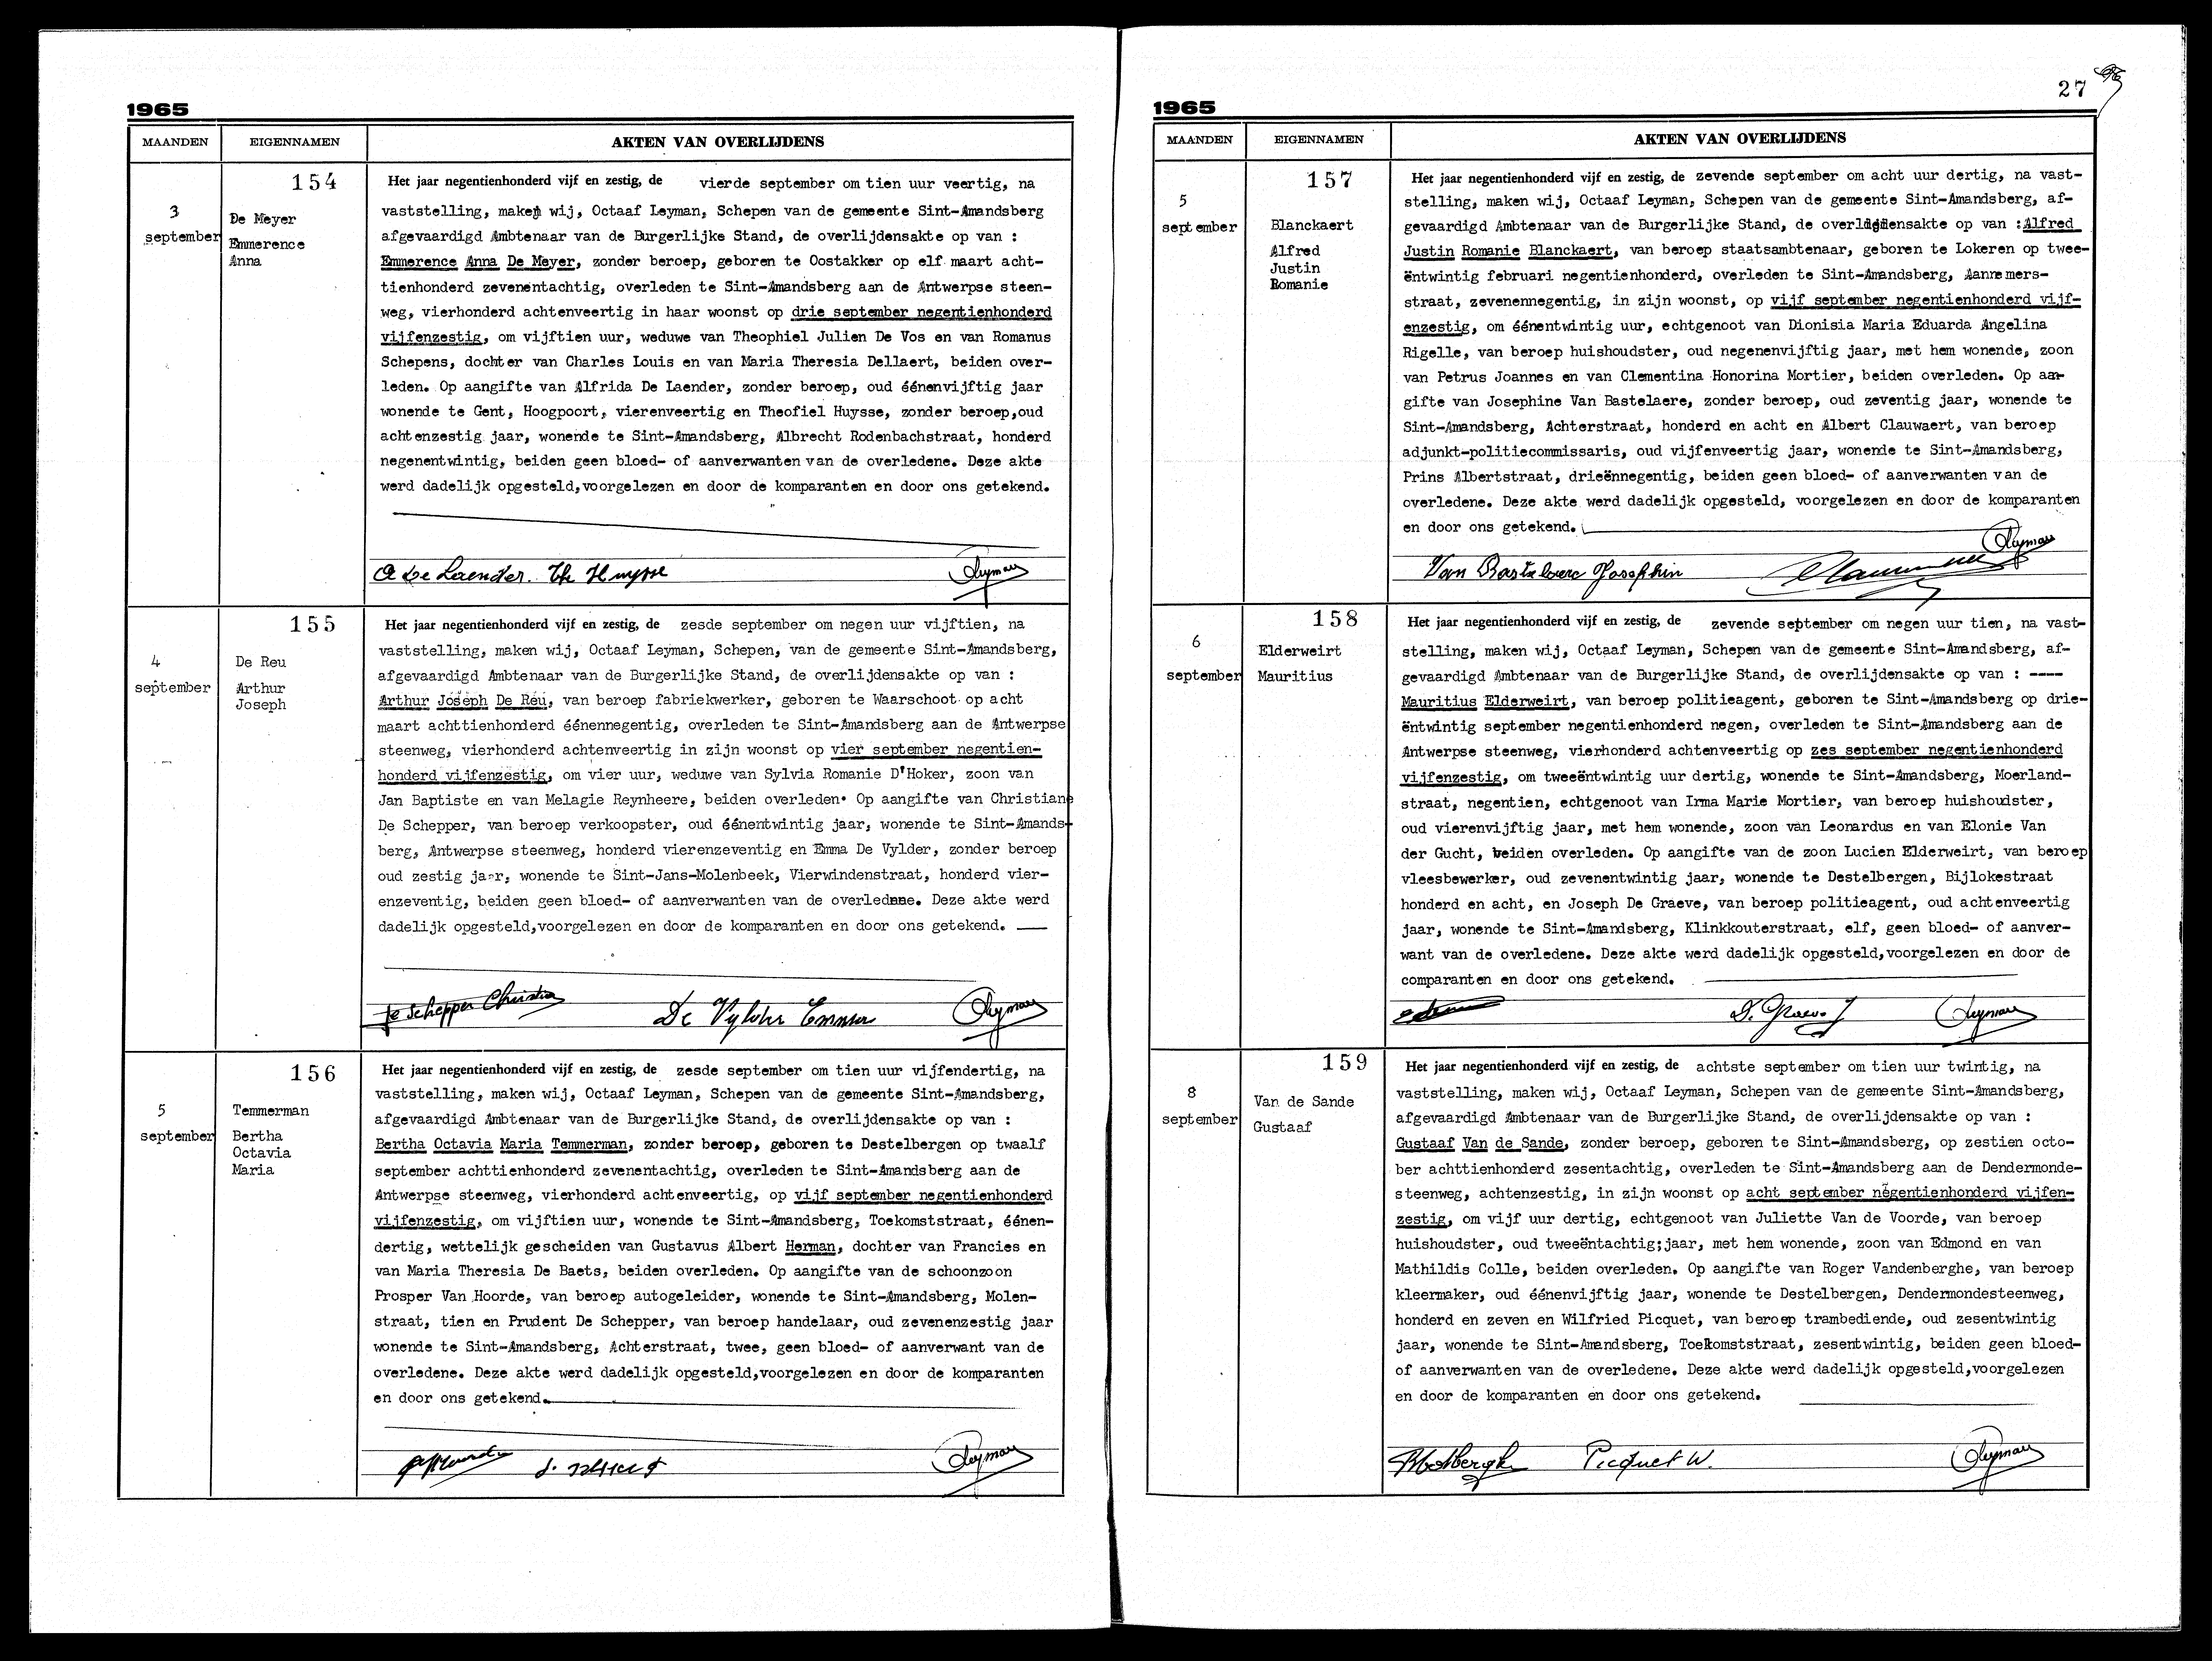 1965
MAANDEN
EIGENNAMEN
AKTEN VAN OVERLIJDENS
154
3
september
De Meyer
Emmerence
Anna
Het jaar negentienhonderd vijf en zestig, de vierde september om tien uur veertig, na
vaststelling, maken wij, Octaaf Leyman, Schepen van de gemeente Sint-Amandsberg
afgevaardigd Ambtenaar van de Burgerlijke Stand, de overlijdensakte op van :
Emmerence Anna De Meyer, zonder beroep, geboren te Oostakker op elf maart acht-
tienhonderd zevenentachtig, overleden te Sint-Amandsberg aan de Antwerpse steen-
weg, vierhonderd achtenveertig in haar woonst op drie september negentienhonderd
vijfenzestig, om vijftien uur, weduwe van Theophiel Julien De Vos en van Romanus
Schepens, dochter van Charles Louis en van Maria Theresia Dellaert, beiden over-
leden. Op aangifte van Alfrida De Laender, zonder beroep, oud éénenvijftig jaar
wonende te Gent, Hoogpoort, vierenveertig en Theofiel Huysse, zonder beroep,oud
achtenzestig jaar, wonende te Sint-Amandsberg, Albrecht Rodenbachstraat, honderd
negenentwintig, beiden geen bloed- of aanverwanten van de overledene. Deze akte
werd dadelijk opgesteld,voorgelezen en door de komparanten en door ons getekend.
A De Laender. Th Huysse Leyman
155
4
september
De Reu
Arthur
Joseph
Het jaar negentienhonderd vijf en zestig, de zesde september om negen uur vijftien, na
vaststelling, maken wij, Octaaf Leyman, Schepen, van de gemeente Sint-Amandsberg,
afgevaardigd Ambtenaar van de Burgerlijke Stand, de overlijdensakte op van :
Arthur Joseph De Reu, van beroep fabriekwerker, geboren te Waarschoot op acht
maart achttienhonderd éénennegentig, overleden te Sint-Amandsberg aan de Antwerpse
steenweg, vierhonderd achtenveertig in zijn woonst op vier september negentien-
honderd vijfenzestig, om vier uur, weduwe van Sylvia Romanie D'Hoker, zoon van
Jan Baptiste en van Melagie Reynheere, beiden overleden. Op aangifte van Christiane
De Schepper, van beroep verkoopster, oud éénentwintig jaar, wonende te Sint-Amands-
berg, Antwerpse steenweg, honderd vierenzeventig en Emma De Vylder, zonder beroep
oud zestig jaar, wonende te Sint-Jans-Molenbeek, Vierwindenstraat, honderd vier-
enzeventig, beiden geen bloed- of aanverwanten van de overledene. Deze akte werd
dadelijk opgesteld,voorgelezen en door de komparanten en door ons getekend.
De Schepper Christian De Vylder Emma Leyman
156
5
september
Temmerman
Bertha
Octavia
Maria
Het jaar negentienhonderd vijf en zestig, de zesde september om tien uur vijfendertig, na
vaststelling, maken wij, Octaaf Leyman, Schepen van de gemeente Sint-Amandsberg,
afgevaardigd Ambtenaar van de Burgerlijke Stand, de overlijdensakte op van :
Bertha Octavia Maria Temmerman, zonder beroep, geboren te Destelbergen op twaalf
september achttienhonderd zevenentachtig, overleden te Sint-Amandsberg aan de
Antwerpse steenweg, vierhonderd achtenveertig, op vijf september negentienhonderd
vijfenzestig, om vijftien uur, wonende te Sint-Amandsberg, Toekomststraat, éénen-
dertig, wettelijk gescheiden van Gustavus Albert Herman, dochter van Francies en
van Maria Theresia De Baets, beiden overleden. Op aangifte van de schoonzoon
Prosper Van Hoorde, van beroep autogeleider, wonende te Sint-Amandsberg, Molen-
straat, tien en Prudent De Schepper, van beroep handelaar, oud zevenenzestig jaar
wonende te Sint-Amandsberg, Achterstraat, twee, geen bloed- of aanverwant van de
overledene. Deze akte werd dadelijk opgesteld,voorgelezen en door de komparanten
en door ons getekend.
Leyman
27
1965
MAANDEN
EIGENNAMEN
AKTEN VAN OVERLIJDENS
157
5
september
Blanckaert
Alfred
Justin
Romanie
Het jaar negentienhonderd vijf en zestig, de zevende september om acht uur dertig, na vast-
stelling, maken wij, Octaaf Leyman, Schepen van de gemeente Sint-Amandsberg, af-
gevaardigd Ambtenaar van de Burgerlijke Stand, de overlijdensakte op van :Alfred
Justin Romanie Blanckaert, van beroep staatsambtenaar, geboren te Lokeren op twee-
ëntwintig februari negentienhonderd, overleden te Sint-Amandsberg, Aannemers-
straat, zevenennegentig, in zijn woonst, op vijf september negentienhonderd vijf-
enzestig, om éénentwintig uur, echtgenoot van Dionisia Maria Eduarda Angelina
Rigelle, van beroep huishoudster, oud negenenvijftig jaar, met hem wonende, zoon
van Petrus Joannes en van Clementina Honorina Mortier, beiden overleden. Op aan-
gifte van Josephine Van Bastelaere, zonder beroep, oud zeventig jaar, wonende te
Sint-Amandsberg, Achterstraat, honderd en acht en Albert Clauwaert, van beroep
adjunkt-politiecommissaris, oud vijfenveertig jaar, wonende te Sint-Amandsberg,
Prins Albertstraat, drieënnegentig, beiden geen bloed- of aanverwanten van de
overledene. Deze akte werd dadelijk opgesteld, voorgelezen en door de komparanten
en door ons getekend.
Van Bastelaere Josephin Leyman
158
6
september
Elderweirt
Mauritius
Het jaar negentienhonderd vijf en zestig, de zevende september om negen uur tien, na vast-
stelling, maken wij, Octaaf Leyman, Schepen van de gemeente Sint-Amandsberg, af-
gevaardigd Ambtenaar van de Burgerlijke Stand, de overlijdensakte op van : ----
Mauritius Elderweirt, van beroep politieagent, geboren te Sint-Amandsberg op drie-
ëntwintig september negentienhonderd negen, overleden te Sint-Amandsberg aan de
Antwerpse steenweg, vierhonderd achtenveertig op zes september negentienhonderd
vijfenzestig, om tweeëntwintig uur dertig, wonende te Sint-Amandsberg, Moerland-
straat, negentien, echtgenoot van Irma Marie Mortier, van beroep huishoudster,
oud vierenvijftig jaar, met hem wonende, zoon van Leonardus en van Elonie Van
der Gucht, beiden overleden. Op aangifte van de zoon Lucien Elderweirt, van beroep
vleesbewerker, oud zevenentwintig jaar, wonende te Destelbergen, Bijlokestraat
honderd en acht, en Joseph De Graeve, van beroep politieagent, oud achtenveertig
jaar, wonende te Sint-Amandsberg, Klinkkouterstraat, elf, geen bloed- of aanver-
want van de overledene. Deze akte werd dadelijk opgesteld,voorgelezen en door de
comparanten en door ons getekend.
D. Graeve J Leyman
159
8
september
Van de Sande
Gustaaf
Het jaar negentienhonderd vijf en zestig, de achtste september om tien uur twintig, na
vaststelling, maken wij, Octaaf Leyman, Schepen van de gemeente Sint-Amandsberg,
afgevaardigd Ambtenaar van de Burgerlijke Stand, de overlijdensakte op van :
Gustaaf Van de Sande, zonder beroep, geboren te Sint-Amandsberg, op zestien octo-
ber achttienhonderd zesentachtig, overleden te Sint-Amandsberg aan de Dendermonde-
steenweg, achtenzestig, in zijn woonst op acht september negentienhonderd vijfen-
zestig, om vijf uur dertig, echtgenoot van Juliette Van de Voorde, van beroep
huishoudster, oud tweeëntachtig;jaar, met hem wonende, zoon van Edmond en van
Mathildis Colle, beiden overleden. Op aangifte van Roger Vandenberghe, van beroep
kleermaker, oud éénenvijftig jaar, wonende te Destelbergen, Dendermondesteenweg,
honderd en zeven en Wilfried Picquet, van beroep trambediende, oud zesentwintig
jaar, wonende te Sint-Amandsberg, Toekomststraat, zesentwintig, beiden geen bloed-
of aanverwanten van de overledene. Deze akte werd dadelijk opgesteld,voorgelezen
en door de komparanten en door ons getekend.
Picquet W. Leyman